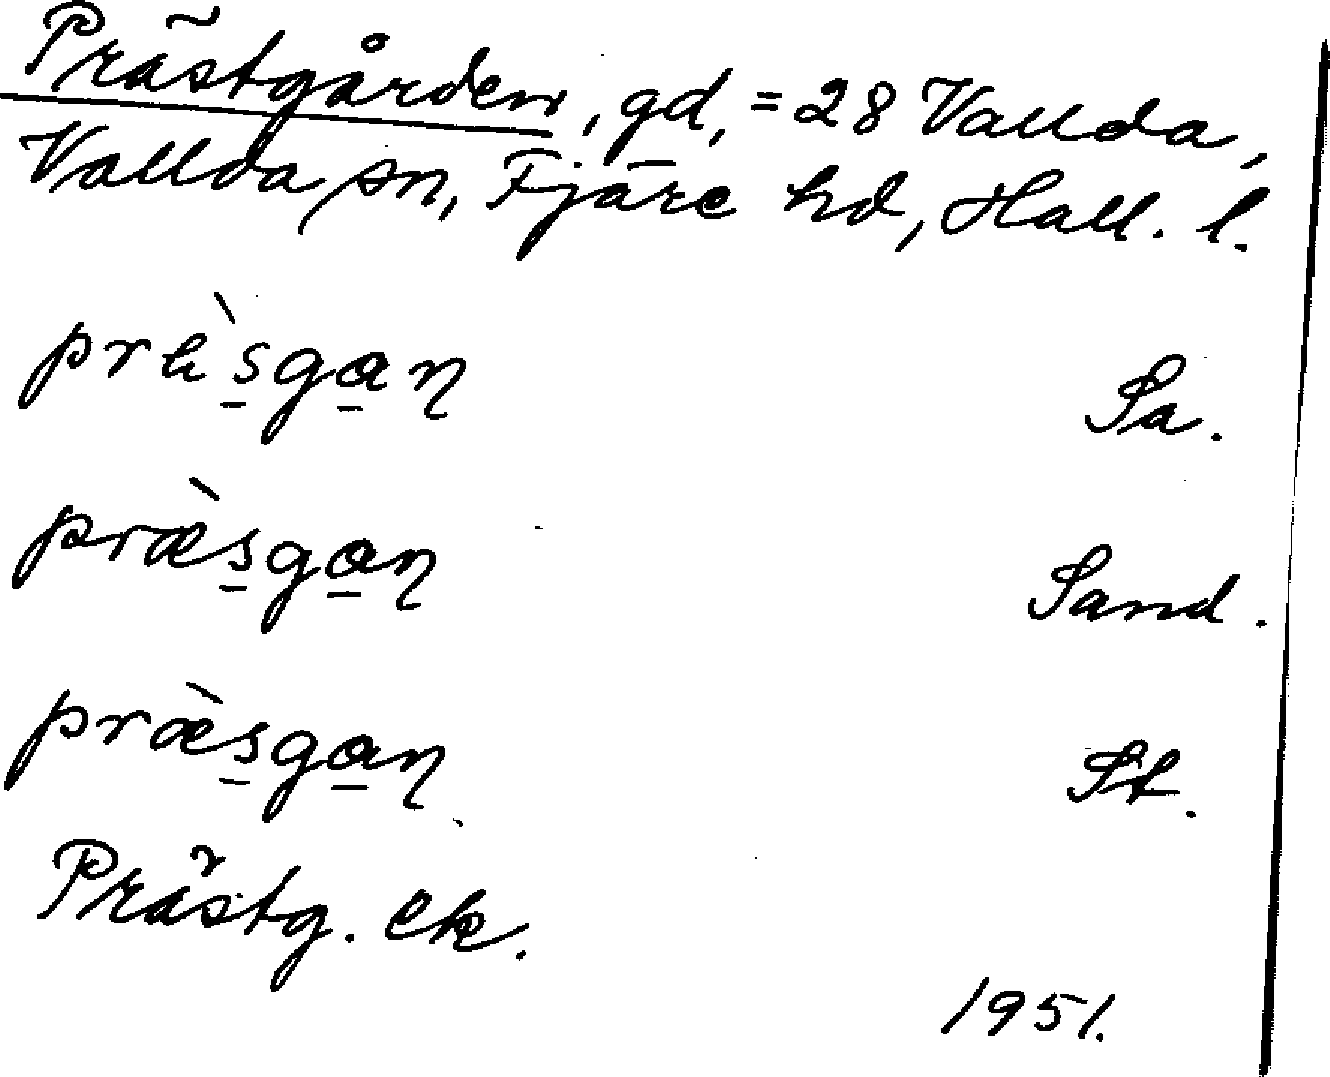 Prästgården, gd, = 28 Vallda,
Vallda sn, Fjäre hd, Hall. l.
præ̀s̠ga̠ɳ Sa.
præ̀s̠ga̠ɳ Sand.
præ̀s̠ga̠ɳ St.
Prästg. ek.
1951.